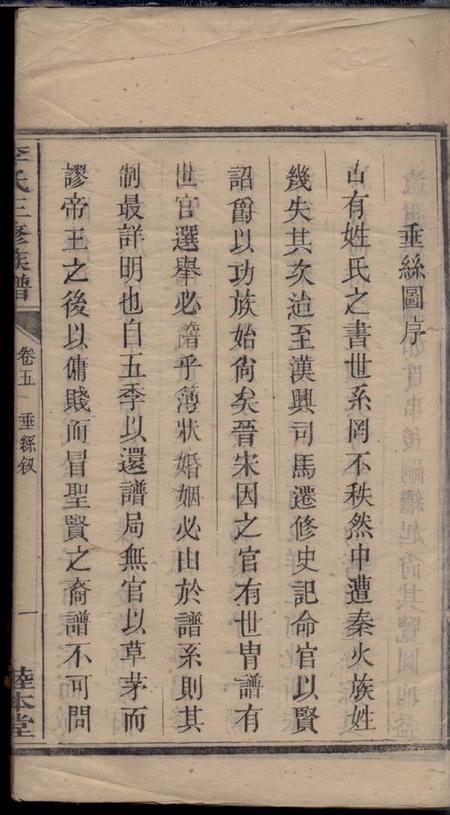 垂絲圖序
古有姓氏之書世系罔不秩然中遭秦火族姓
幾失其次迨至漢興司馬遷修史記命官以賢
詔爵以功族始尙矣晉宋因之官有世胄譜有
世官選舉必譜乎簿狀婚姻必由於譜系則其
制最詳明也自五季以還譜局無官以草茅而
謬帝王之後以傭賤而冒聖賢之裔譜不可問
李氏三修族譜
卷五
垂絲敘
一
陸本堂